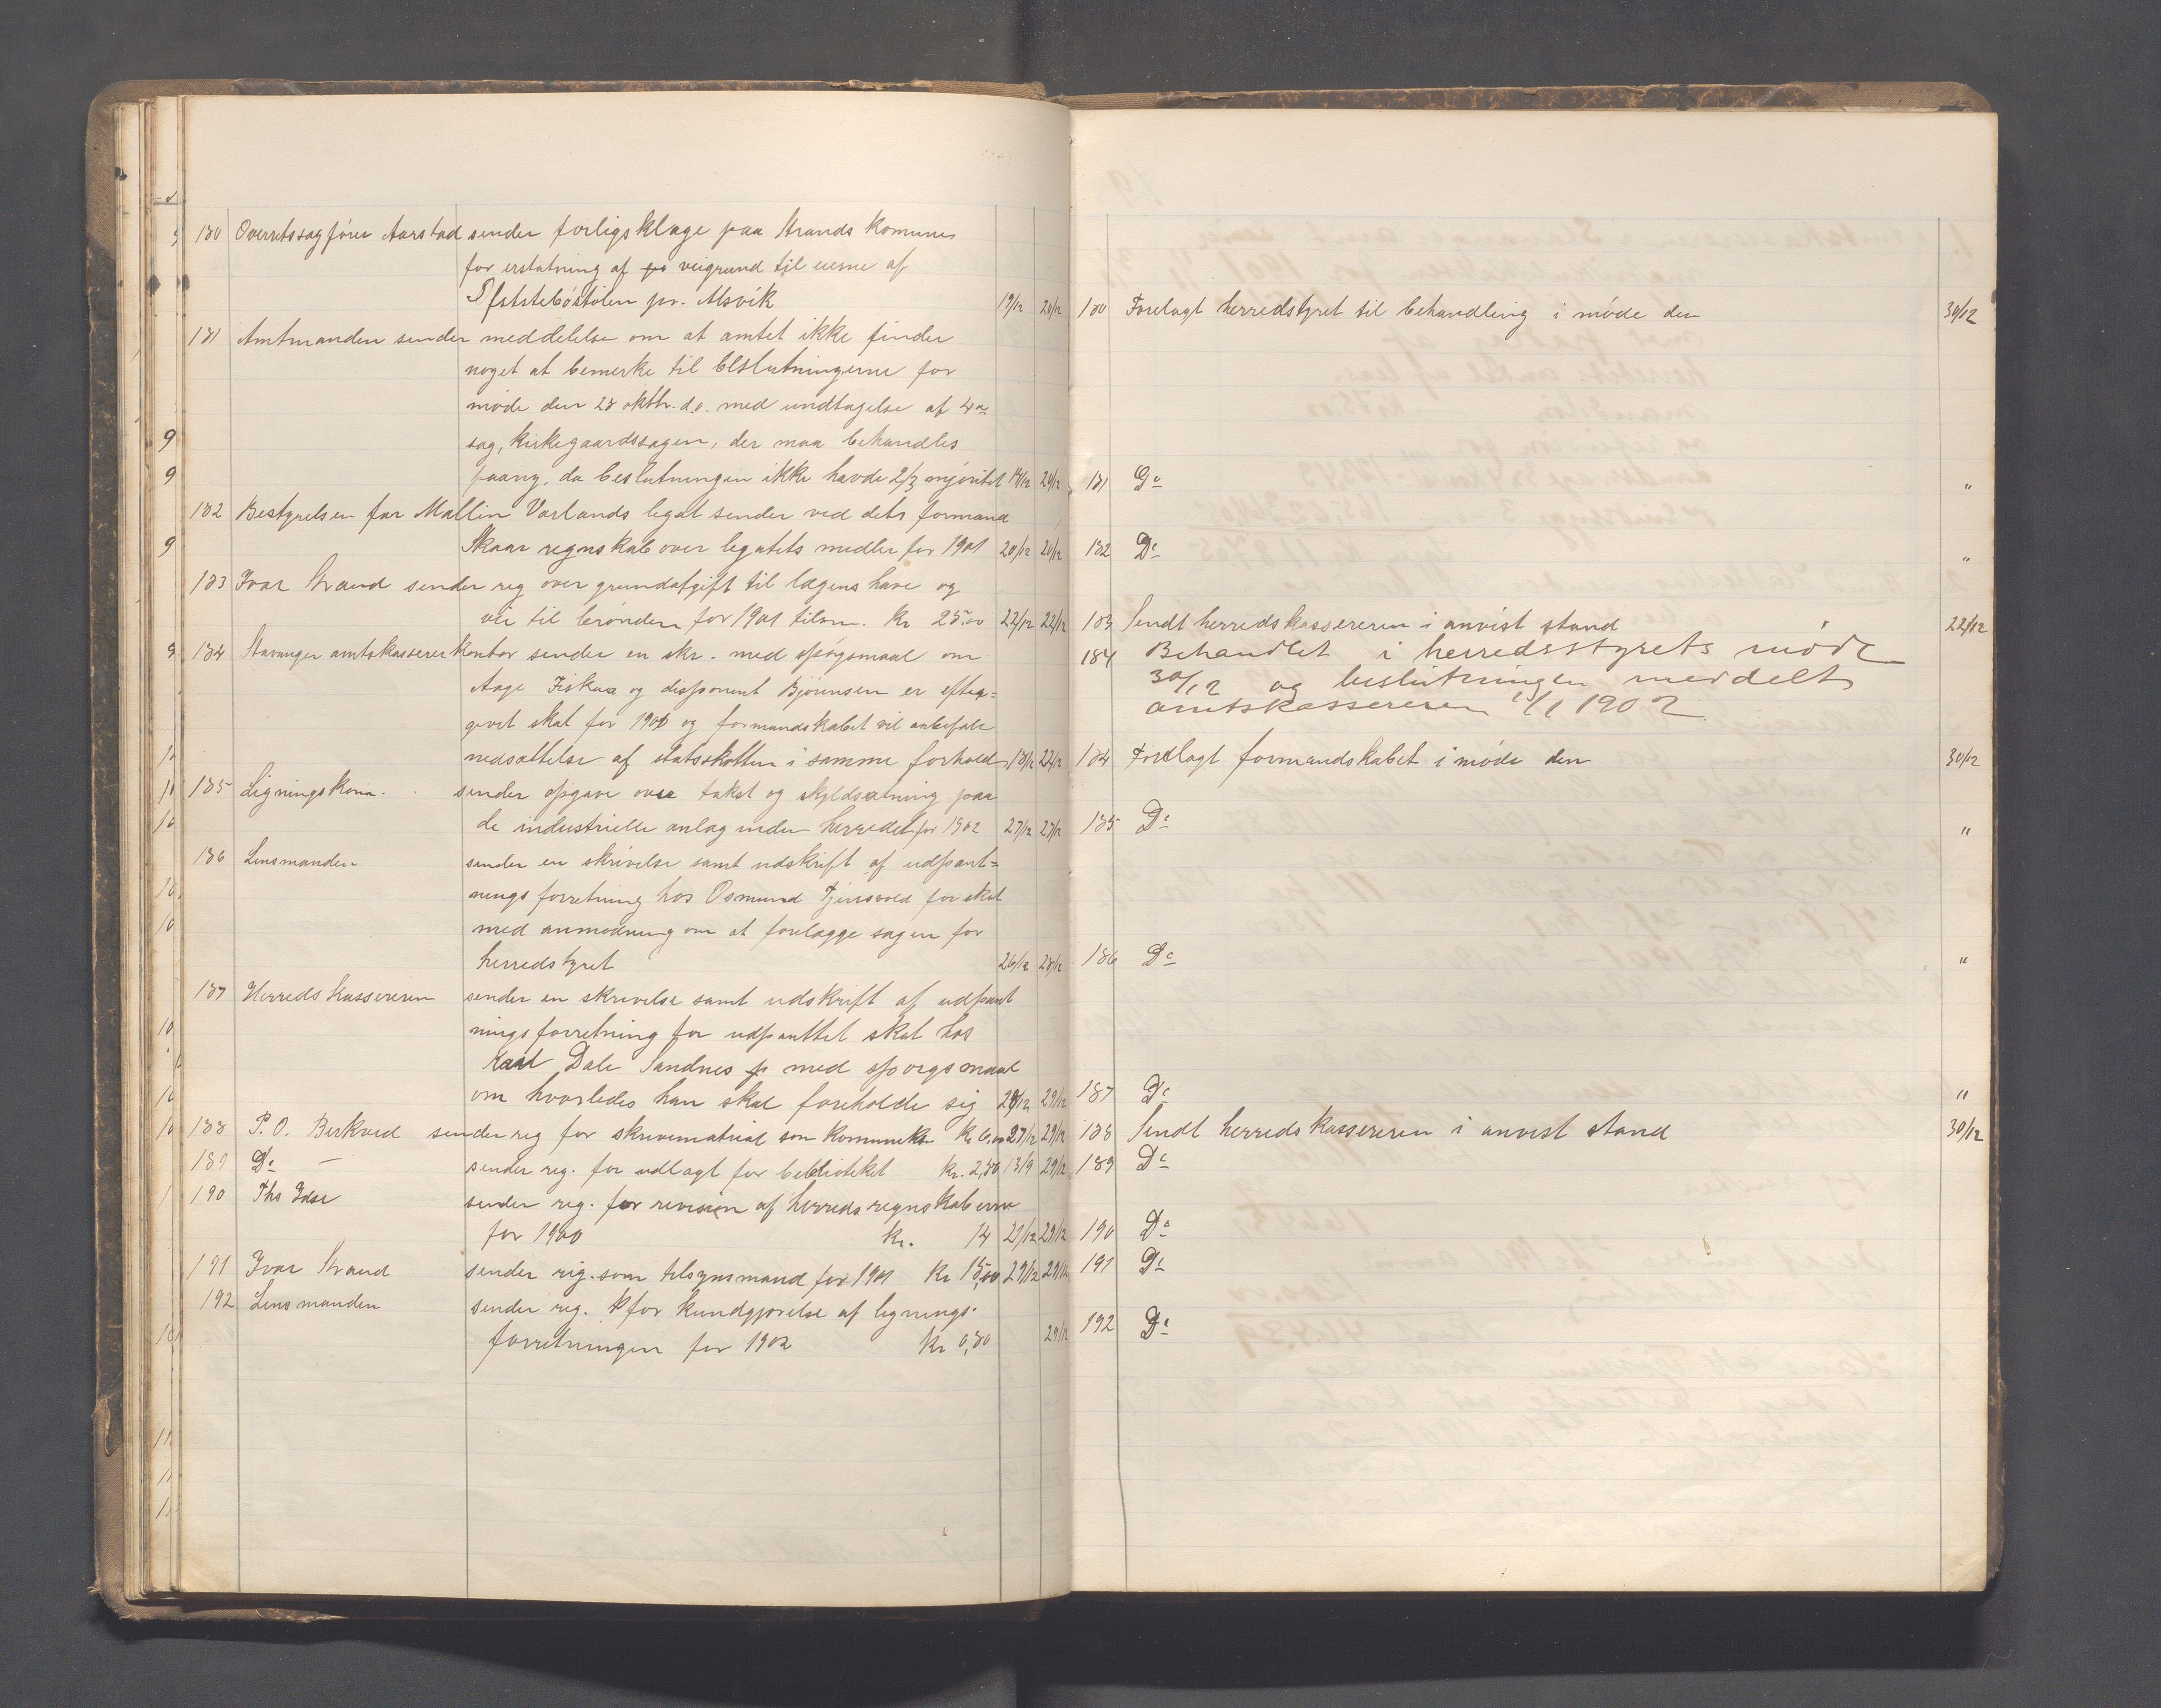 180 Overretssagfører Aarstad sender forligsklage paa Strands Komunes
for erstatning af veigrund til eierne af
pr. Alsvik 19/12 20/12
181 Amtmanden sender meddelelse om at amtet ikke finder
noget at bemerke til beslutningerne for
møde den 28 oktbr. d.a. med undtagelse af 4de
sag, Kirkegaardssagen, der maa behandles
paany, da beslutningen ikke havde 2/3 majoritet 18/12 20/12
182 Bestyrelsen for Mallin Varlands legat sender ved dets formand
Skaar regnskab over legatets midler for 1901 20/12 20/12
183 Ivar Strand sender reg over grundafgift til lægens have og
vei til brønden for 1901 tilsm. Kr 25,00 22/12 22/12
184 Stavanger amtskassererkontor sender en skr. med spørgsmaal om
Aage Fiskaa og disponent Bjørnsen er efter=
givet skat for 1900 og formandskabet vil anbefale
nedsættelse af statsskatten i samme forhold 18/12 22/12
185 Ligningskom. sender opgave over takst og skyldsætning paa
de industrielle anlæg inden herredet for 1902 27/12 27/12
186 Lensmanden sender en skrivelse samt udskrift af udpant=
nings forretning hos Osmund Fjensvold for skat
med anmodning om at forelægge sagen for
herredstyret 26/12 28/12
187 Herreds kassereren sender en skrivelse samt udskrift af udpant
nings forretning for udpanttet skat hos
Dale Sandnes med spørgsmaal
om hvorledes han skal foreholde sig 28/12 29/12
188 P. O. Berkved sender reg for skrivematrial som Kr 6,00 27/12 29/12
189 Do — sender reg. for udlagt for biblioteket Kr. 2,80 13/9 29/12
190 Ths Idse sender reg. for revision af herreds regnskaberne
for 1900 Kr. 14 27/12 29/12
191 Ivar Strand sender reg. som tilsynsmand for 1901 Kr 15,00 29/12 29/12
192 Lensmanden sender reg. for kundgjørelse af lignings-
forretningen for 1902 Kr 0,80 29/12
180 Forelagt herredstyret til behandling i møde den 30/12
181 Do "
182 Do "
183 Sendt herredskassereren i anvist stand 22/12
184 Behandlet i herredsstyrets møde
30/12 og beslutningen meddelt
amtskassereren 1902
184 Forelagt formandskabet i møde den 30/12
185 Do "
186 Do "
187 Do "
188 Sendt herredskassereren i anvist stand 30/12
189 Do
190 Do
191 Do
192 Do